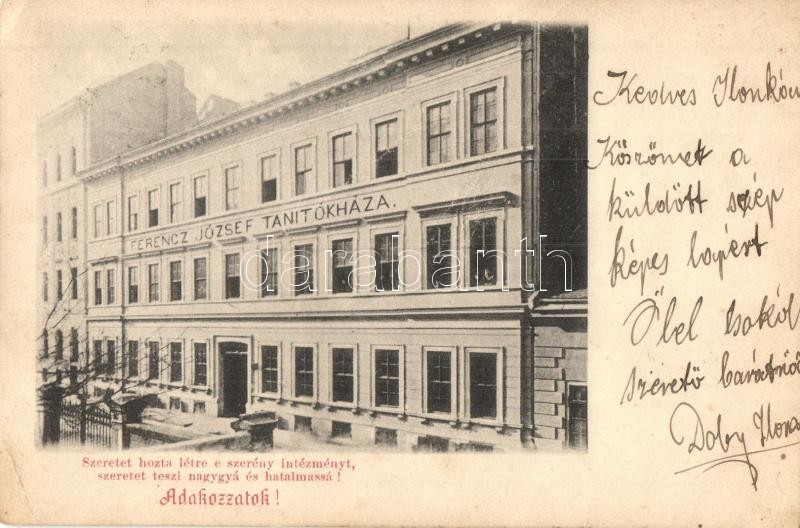 FERENCZ JÓZSEF TANITÓKHÁZA.
darabanth
Szeretet hozta létre e szerény intézményt,
szeretet teszi nagygyá és hatalmassá!
Adakozzatok!
Kedves Ilonkám
Köszönet a
küldött szép
képes lapért
Ölel sokol
szerető barátnőd
Doby Ilona